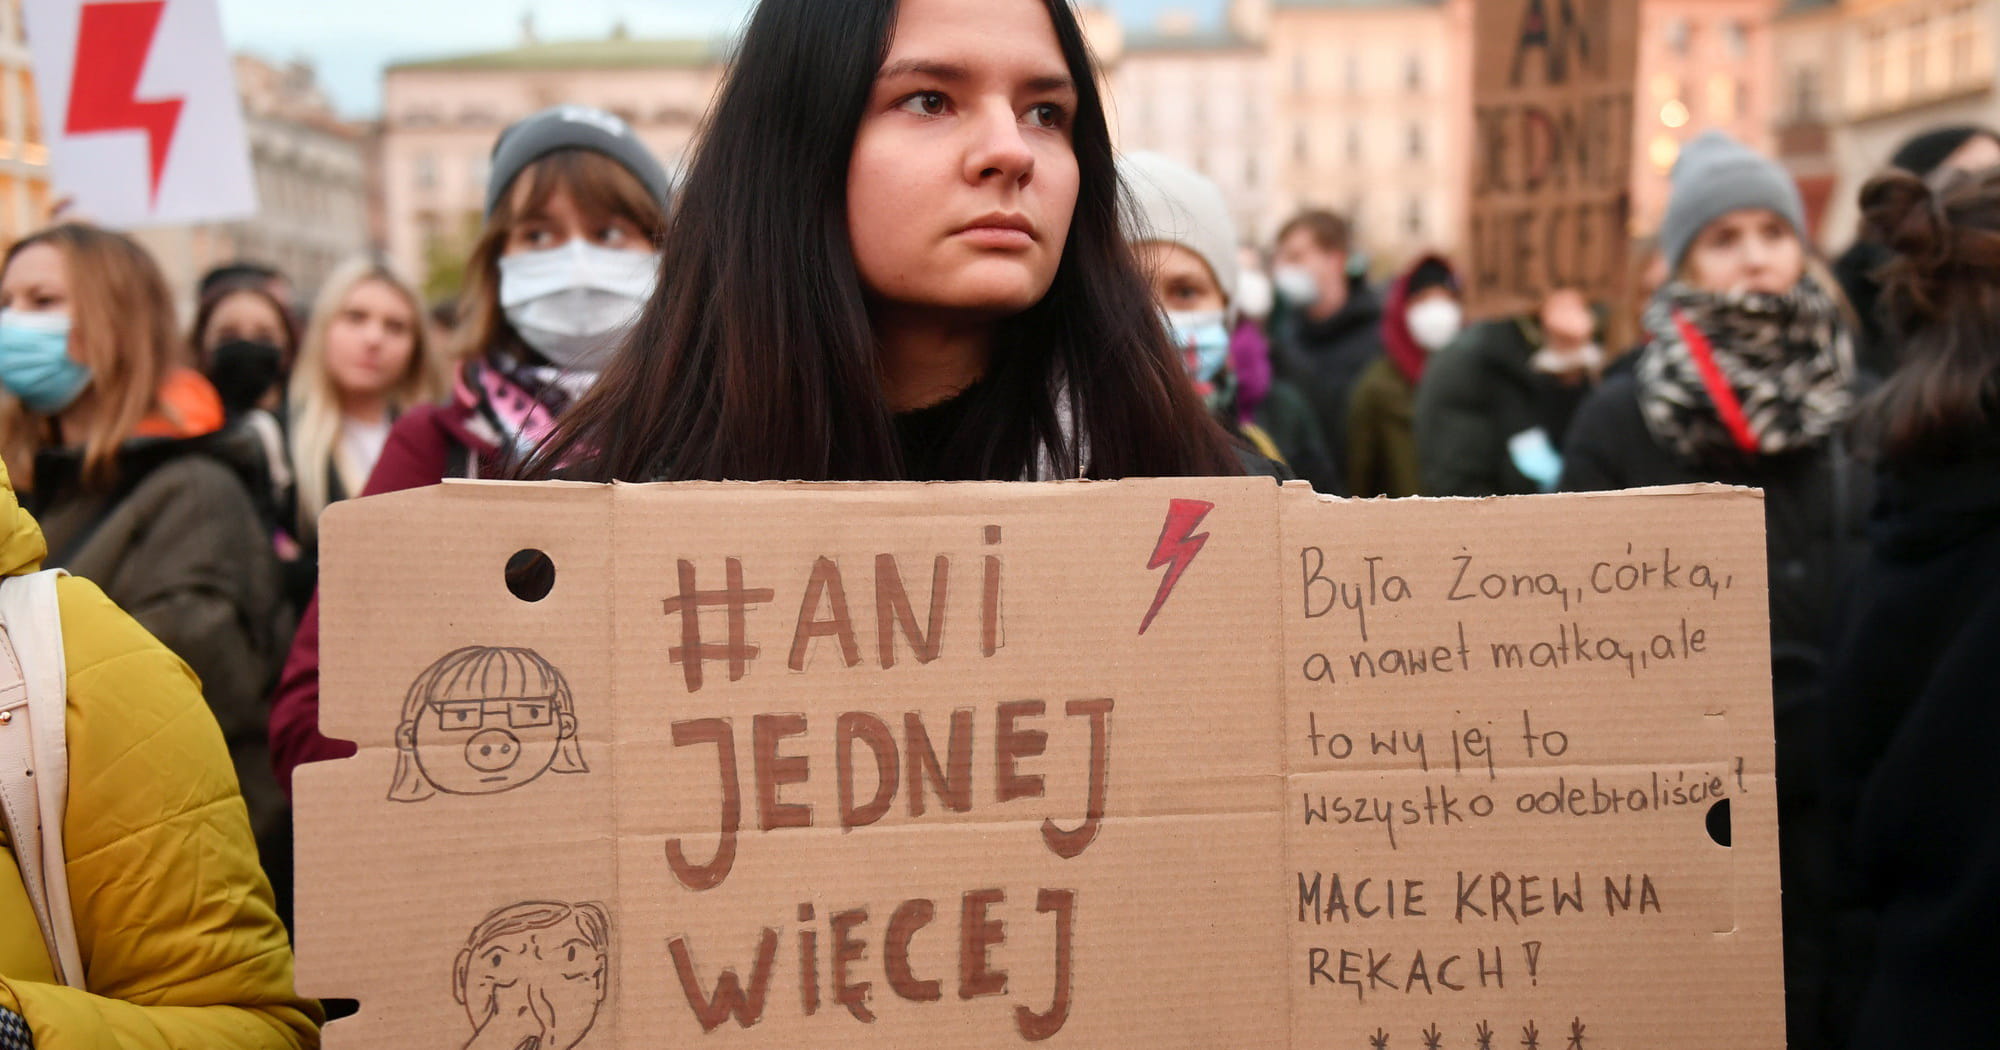 AN
JEDNEJ
WIĘCEJ
#ANi
JEDNEJ
WiĘCEJ
Była Żoną, córką,
a nawet matką, ale
to wy jej to
wszystko odebraliście!
MACIE KREW NA
RĘKACH!
* * * * *